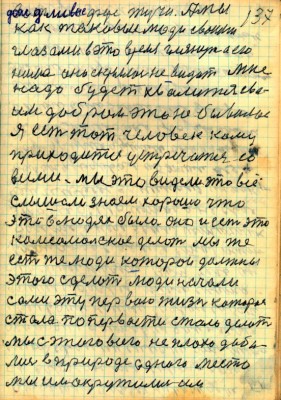 дождливые тучи. А мы 137
как таковые люди своими
глазами в это время глянули а его
нима оно скрылось не видать мне
надо будет хвалится сво-
им добром это не бывалое
Я есть тот человек кому
приходится устречатся со
всеми. мы это видели это всё
слышали знаем хорошо что
это в людях было оно и есть это
комсомолское дело мы же
есть те люди которои должны
этого сделать люди начали
сами эту первою жизн которая
стала по первости стало делат
мы с этого всего не плохо доба-
ли в природе одного место
мы им окружили-